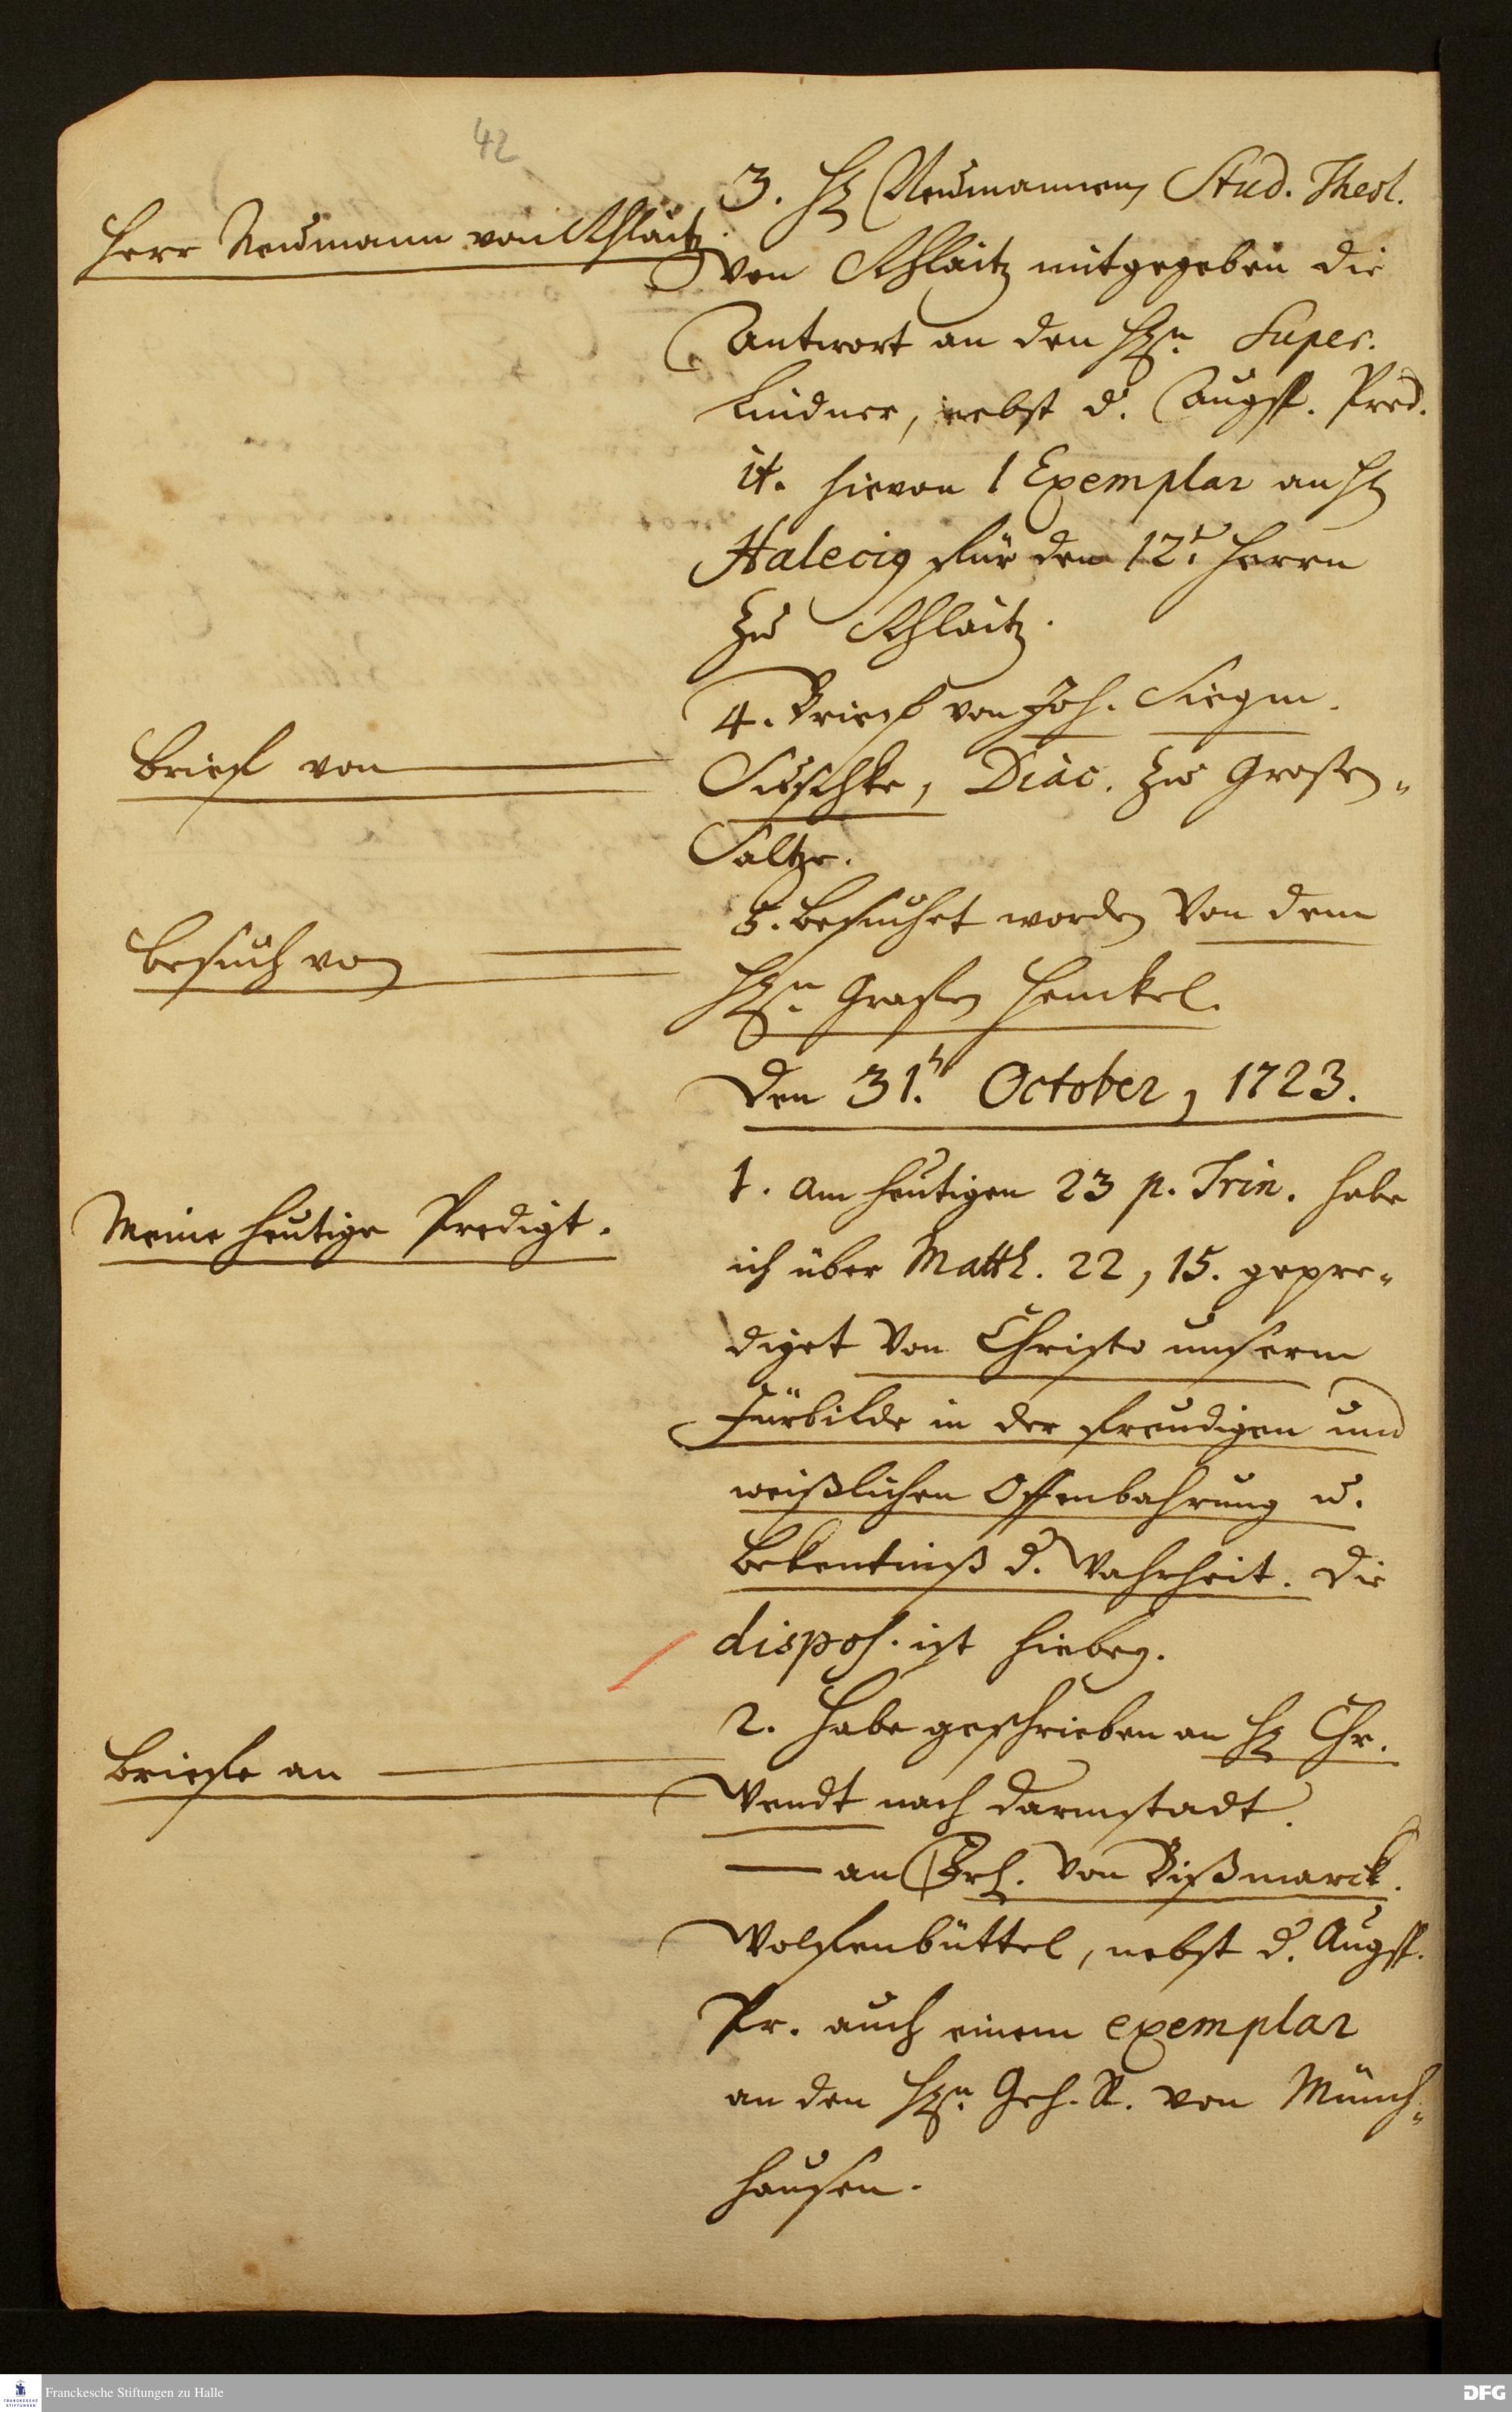 42
Herr Neumann von Schlaitz.
3. H. Neumannen, Stud. Theol.
von Schlaitz mitgegeben die
Antwort an den HEn. Super.
Lindner, nebst d. Augst. Pred.
it. hievon 1 Exemplar an H
für den 12t. Herrn
zu Schlaitz.
Brief von
4. Brieff von Joh. Siegm.
Diac. zu Großen-
Saltze.
Besuch von
5. Besuchet worden von dem
HEn. Grafen Henckel.
Den 31.n October, 1723.
Meine heutige Predigt.
1. Am heutigen 23 p. Trin. habe
ich über Matth. 22, 15. gepre-
diget von Christo unserm
Fürbilde in der freudigen und
weißlichen Offenbahrung u.
Bekentniß d. Wahrheit. Die
dispos. ist hiebey.
Briefe an
2. Habe geschrieben an H. Chr.
Wendt nach Darmstadt.
— an Frl. von Bißmarck.
Wolfenbüttel, nebst d. Augst.
Pr. auch einem exemplar
an den HEn. Geh. R. von Münch-
hausen.
Franckesche Stiftungen zu Halle
DFG